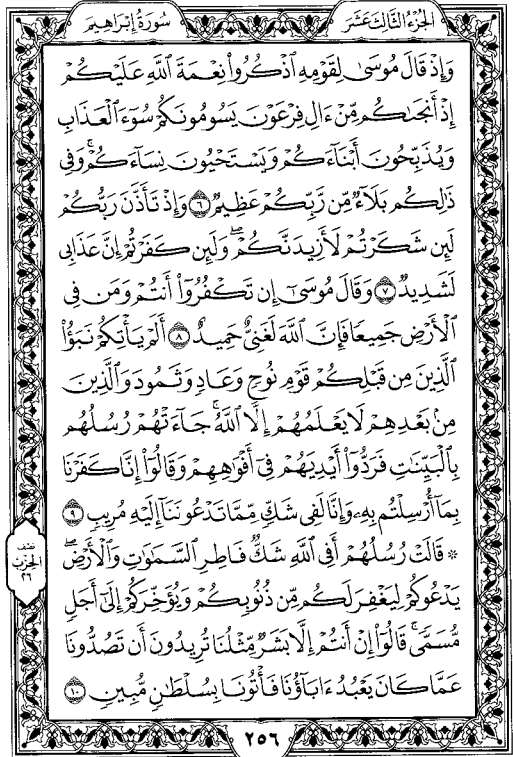 الجُزْءُ الثَّالِثَ عَشَرَ
سُورَةُ إِبْرَاهِيمَ
وَإِذْ قَالَ مُوسَىٰ لِقَوْمِهِ ٱذْكُرُواْ نِعْمَةَ ٱللَّهِ عَلَيْكُمْ
إِذْ أَنجَىٰكُم مِّنْ ءَالِ فِرْعَوْنَ يَسُومُونَكُمْ سُوٓءَ ٱلْعَذَابِ
وَيُذَبِّحُونَ أَبْنَآءَكُمْ وَيَسْتَحْيُونَ نِسَآءَكُمْ ۚ وَفِى
ذَٰلِكُم بَلَآءٌ مِّن رَّبِّكُمْ عَظِيمٌ ٦ وَإِذْ تَأَذَّنَ رَبُّكُمْ
لَئِن شَكَرْتُمْ لَأَزِيدَنَّكُمْ ۖ وَلَئِن كَفَرْتُمْ إِنَّ عَذَابِى
لَشَدِيدٌ ٧ وَقَالَ مُوسَىٰٓ إِن تَكْفُرُوٓاْ أَنتُمْ وَمَن فِى
ٱلْأَرْضِ جَمِيعًا فَإِنَّ ٱللَّهَ لَغَنِىٌّ حَمِيدٌ ٨ أَلَمْ يَأْتِكُمْ نَبَؤُاْ
ٱلَّذِينَ مِن قَبْلِكُمْ قَوْمِ نُوحٍ وَعَادٍ وَثَمُودَ وَٱلَّذِينَ
مِنۢ بَعْدِهِمْ لَا يَعْلَمُهُمْ إِلَّا ٱللَّهُ ۚ جَآءَتْهُمْ رُسُلُهُم
بِٱلْبَيِّنَٰتِ فَرَدُّوٓاْ أَيْدِيَهُمْ فِىٓ أَفْوَٰهِهِمْ وَقَالُوٓاْ إِنَّا كَفَرْنَا
بِمَآ أُرْسِلْتُم بِهِۦ وَإِنَّا لَفِى شَكٍّ مِّمَّا تَدْعُونَنَآ إِلَيْهِ مُرِيبٍ ٩
۞ قَالَتْ رُسُلُهُمْ أَفِى ٱللَّهِ شَكٌّ فَاطِرِ ٱلسَّمَٰوَٰتِ وَٱلْأَرْضِ ۖ
يَدْعُوكُمْ لِيَغْفِرَ لَكُم مِّن ذُنُوبِكُمْ وَيُؤَخِّرَكُمْ إِلَىٰٓ أَجَلٍ
مُّسَمًّى ۚ قَالُوٓاْ إِنْ أَنتُمْ إِلَّا بَشَرٌ مِّثْلُنَا تُرِيدُونَ أَن تَصُدُّونَا
عَمَّا كَانَ يَعْبُدُ ءَابَآؤُنَا فَأْتُونَا بِسُلْطَٰنٍ مُّبِينٍ ١٠
نصف
الحزب
٢٦
٢٥٦